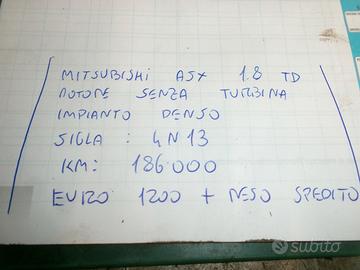 MITSUBISHI ASX 1.8 TD
MOTORE SENZA TURBINA
IMPIANTO DENSO
SIGLA : 4N13
KM: 186000
EURO 1200 + RESO SPEDITO
subito